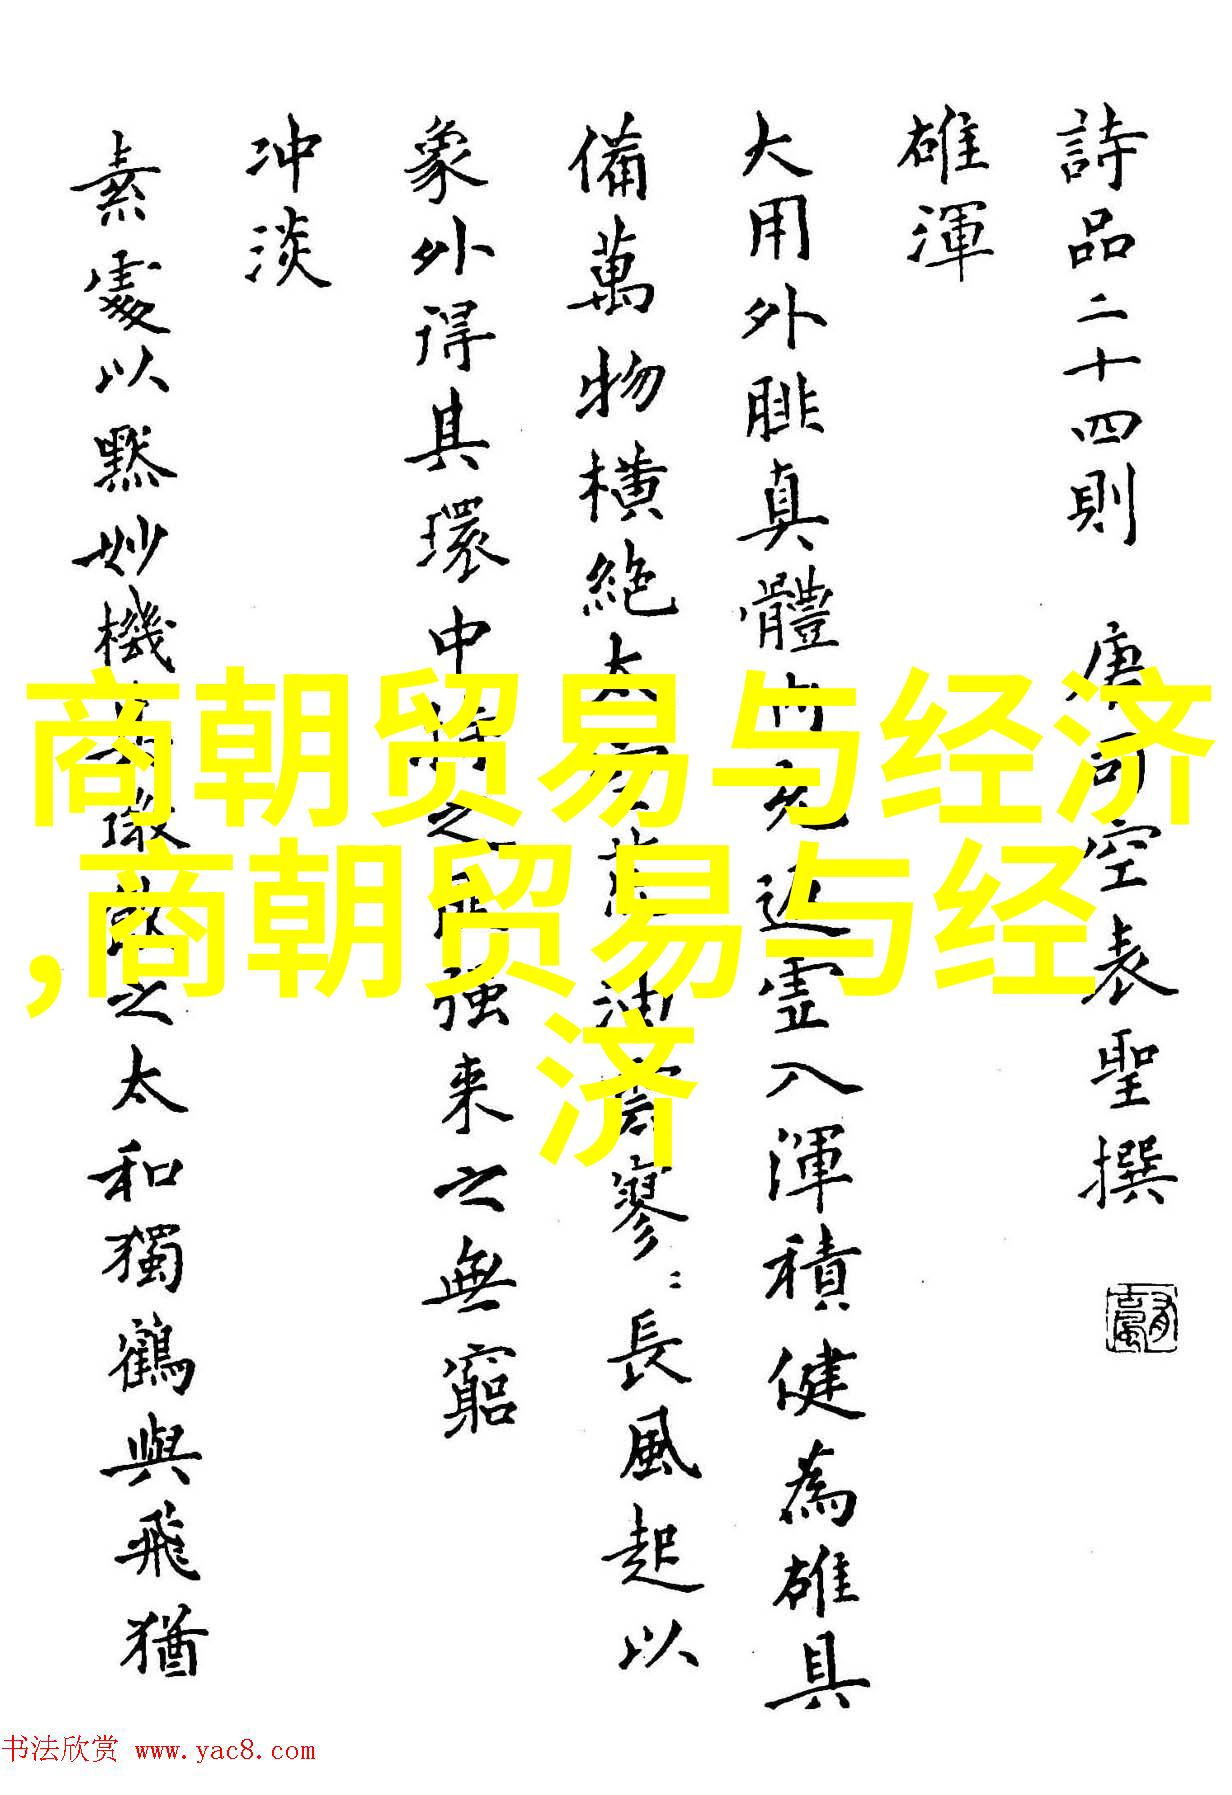 詩品二十四則 唐司空表聖撰
雄渾
大用外腓真體内充返虛入渾積健為雄具
備萬物橫絕太空荒荒油雲寥〻長風起以
象外得其環中持之匪強来之無窮
冲淡
素處以默妙機其微飲之太和獨鶴與飛猶
商朝贸易与经济
,商朝贸易与经
济
书法欣赏 www.yac8.com